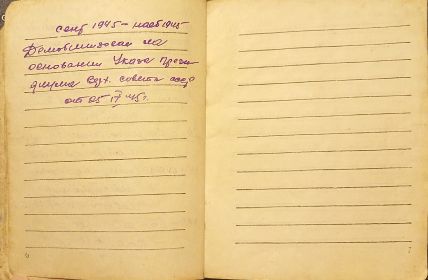 сент 1945 – нояб 1945
Демобилизован на
основании Указа През-
диума Верх. совета ссср
от 25 IX 45 г.
6
7